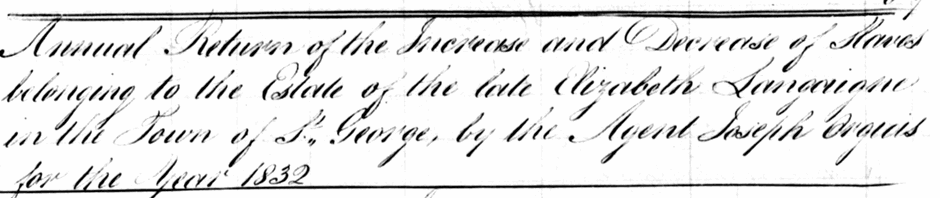 Annual Return of the Increase and Decrease of Slaves
belonging to the Estate of the late Elizabeth Langaigne
in the Town of St. George, by the Agent Joseph
for the Year 1832